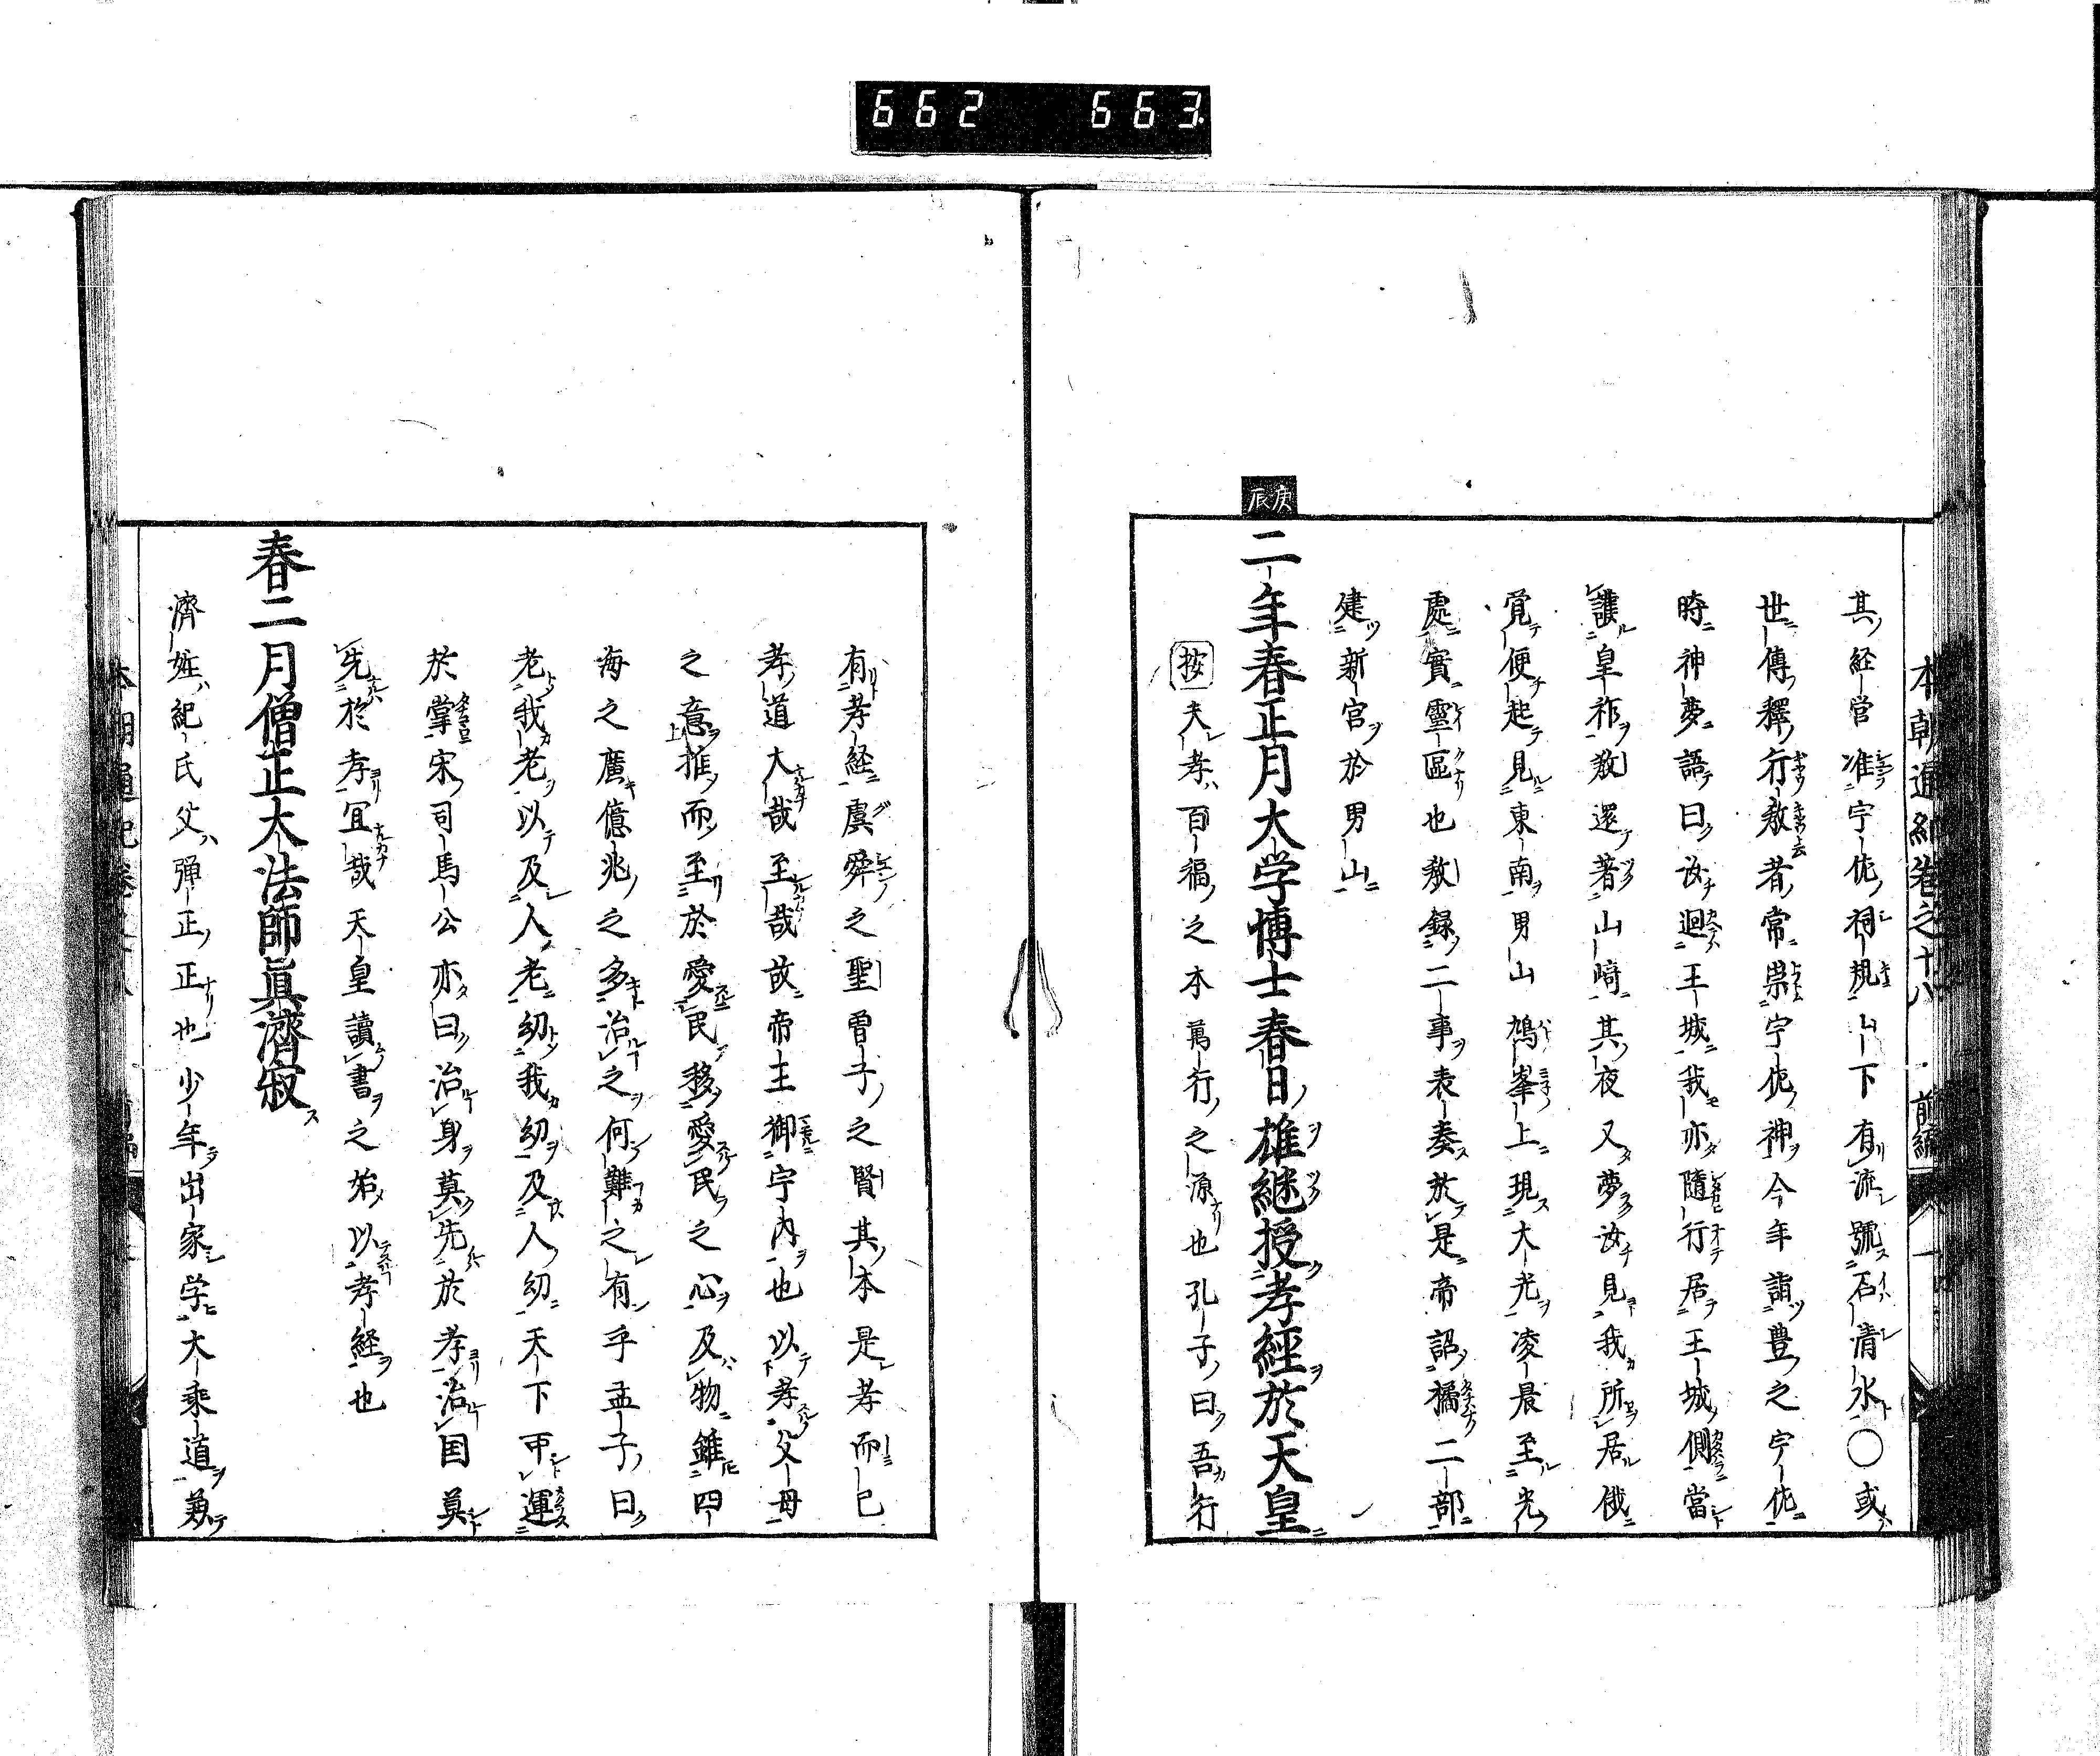 662 663
本朝通紀巻之十八 前編 一
其経営准宇佐祠規山下有流號石清水○或
世傳釋行教者常崇宇佐神今年詣豊之宇佐
時神夢語曰汝迴王城我亦隨行居王城側當
護皇祚教還著山﨑其夜又夢汝見我所居俄
覚便起見東南男山鳩峯上現大光凌晨至光
處實靈區也教録二事表奏於是帝詔橘二部
建新宮於男山
庚辰
二年春正月大学博士春日雄継授孝經於天皇
按夫孝百福之本萬行之源也孔子曰吾行
有孝経虞舜之聖曽子之賢其本是孝而已
孝道大哉至哉故帝王御宇内也以孝父母
之意推而至於愛民移愛民之心及物雖四
海之廣億兆之多治之何難之有乎孟子曰
老我老以及人老幼我幼及人幼天下可運
於掌宋司馬公亦曰治身莫先於孝治国莫
先於孝宜哉天皇讀書之始以孝経也
春二月僧正大法師眞濟寂
濟姓紀氏父弾正正也少年出家学大乘道兼